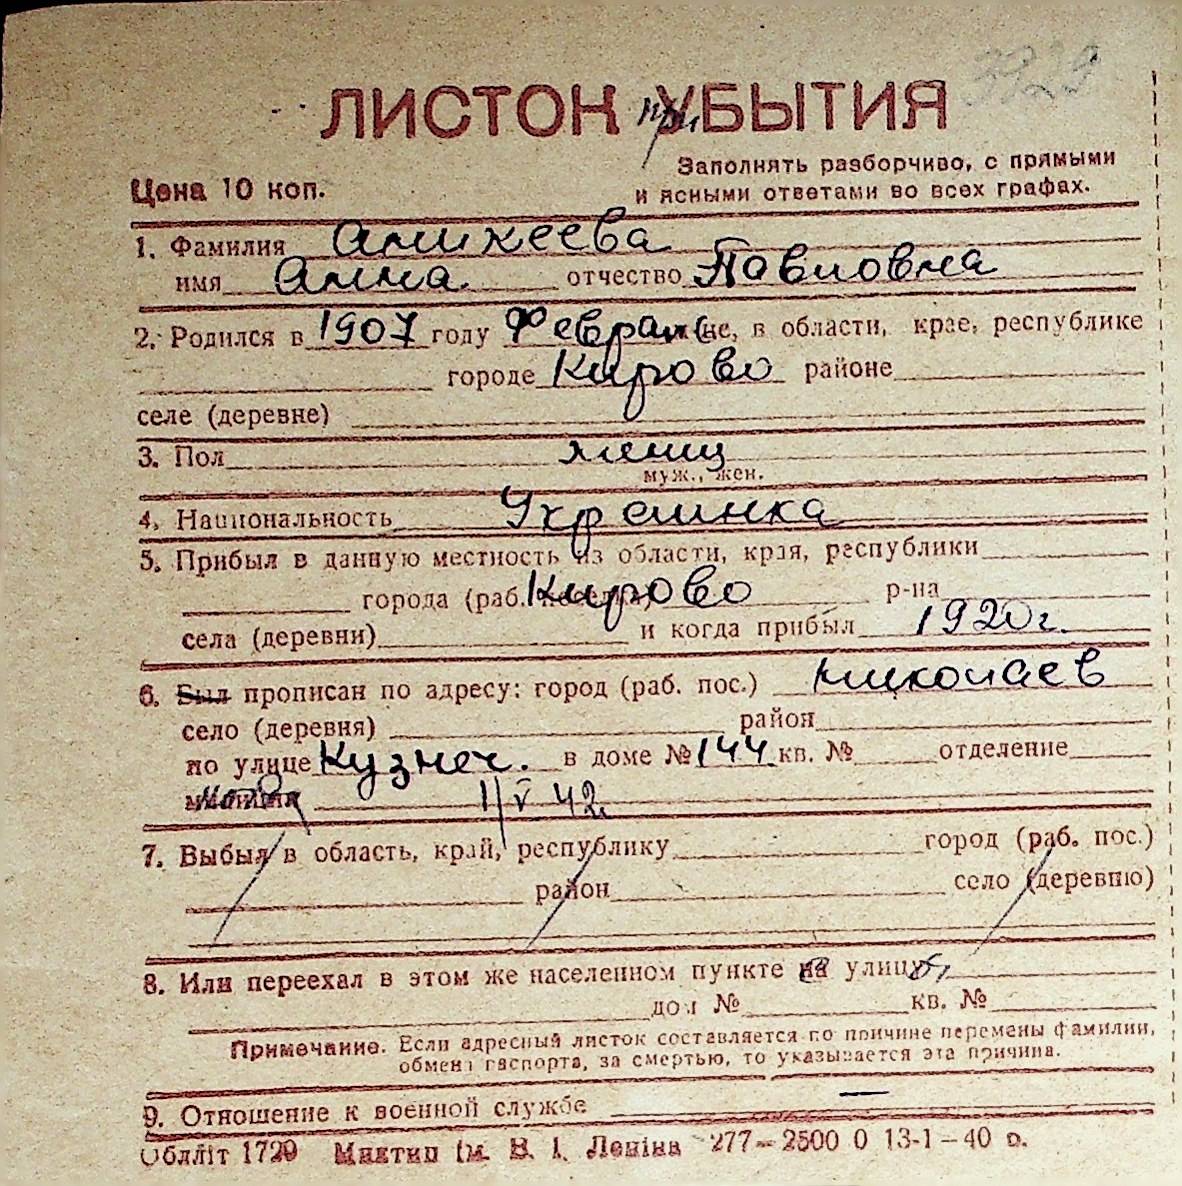 3929
ЛИСТОК при УБЫТИЯ
Цена 10 коп.
Заполнять разборчиво, с прямыми
и ясными ответами во всех графах.
1. Фамилия Аникеева
имя Анна отчество Павловна
2. Родился в 1907 году Феврале, в области, крае, республике
городе Кирово районе
селе (деревне)
3. Пол женщ
муж., жен.
4. Национальность Украинка
5. Прибыл в данную местность из области, края, республики
города (раб. поселка) Кирово р-на
села (деревни) и когда прибыл 1920 г.
6. Был прописан по адресу: город (раб. пос.) Николаев
село (деревня) район
по улице Кузнеч. в доме № 144 кв. № отделение
милиции 1/V 42
7. Выбыл в область, край, республику город (раб. пос.)
район село (деревню)
8. Или переехал в этом же населенном пункте на улицу
дом № кв. №
Примечание. Если адресный листок составляется по причине перемены фамилии,
обмена паспорта, за смертью, то указывается эта причина.
9. Отношение к военной службе —
Обліт 1729 Миктип ім. В. І. Леніна 277—2500 0 13-1—40 р.